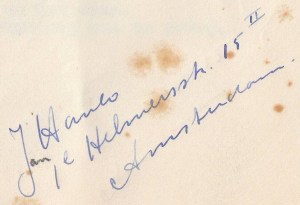 J Hanlo
Jan
1e Helmersstr. 15 II
Amsterdam.